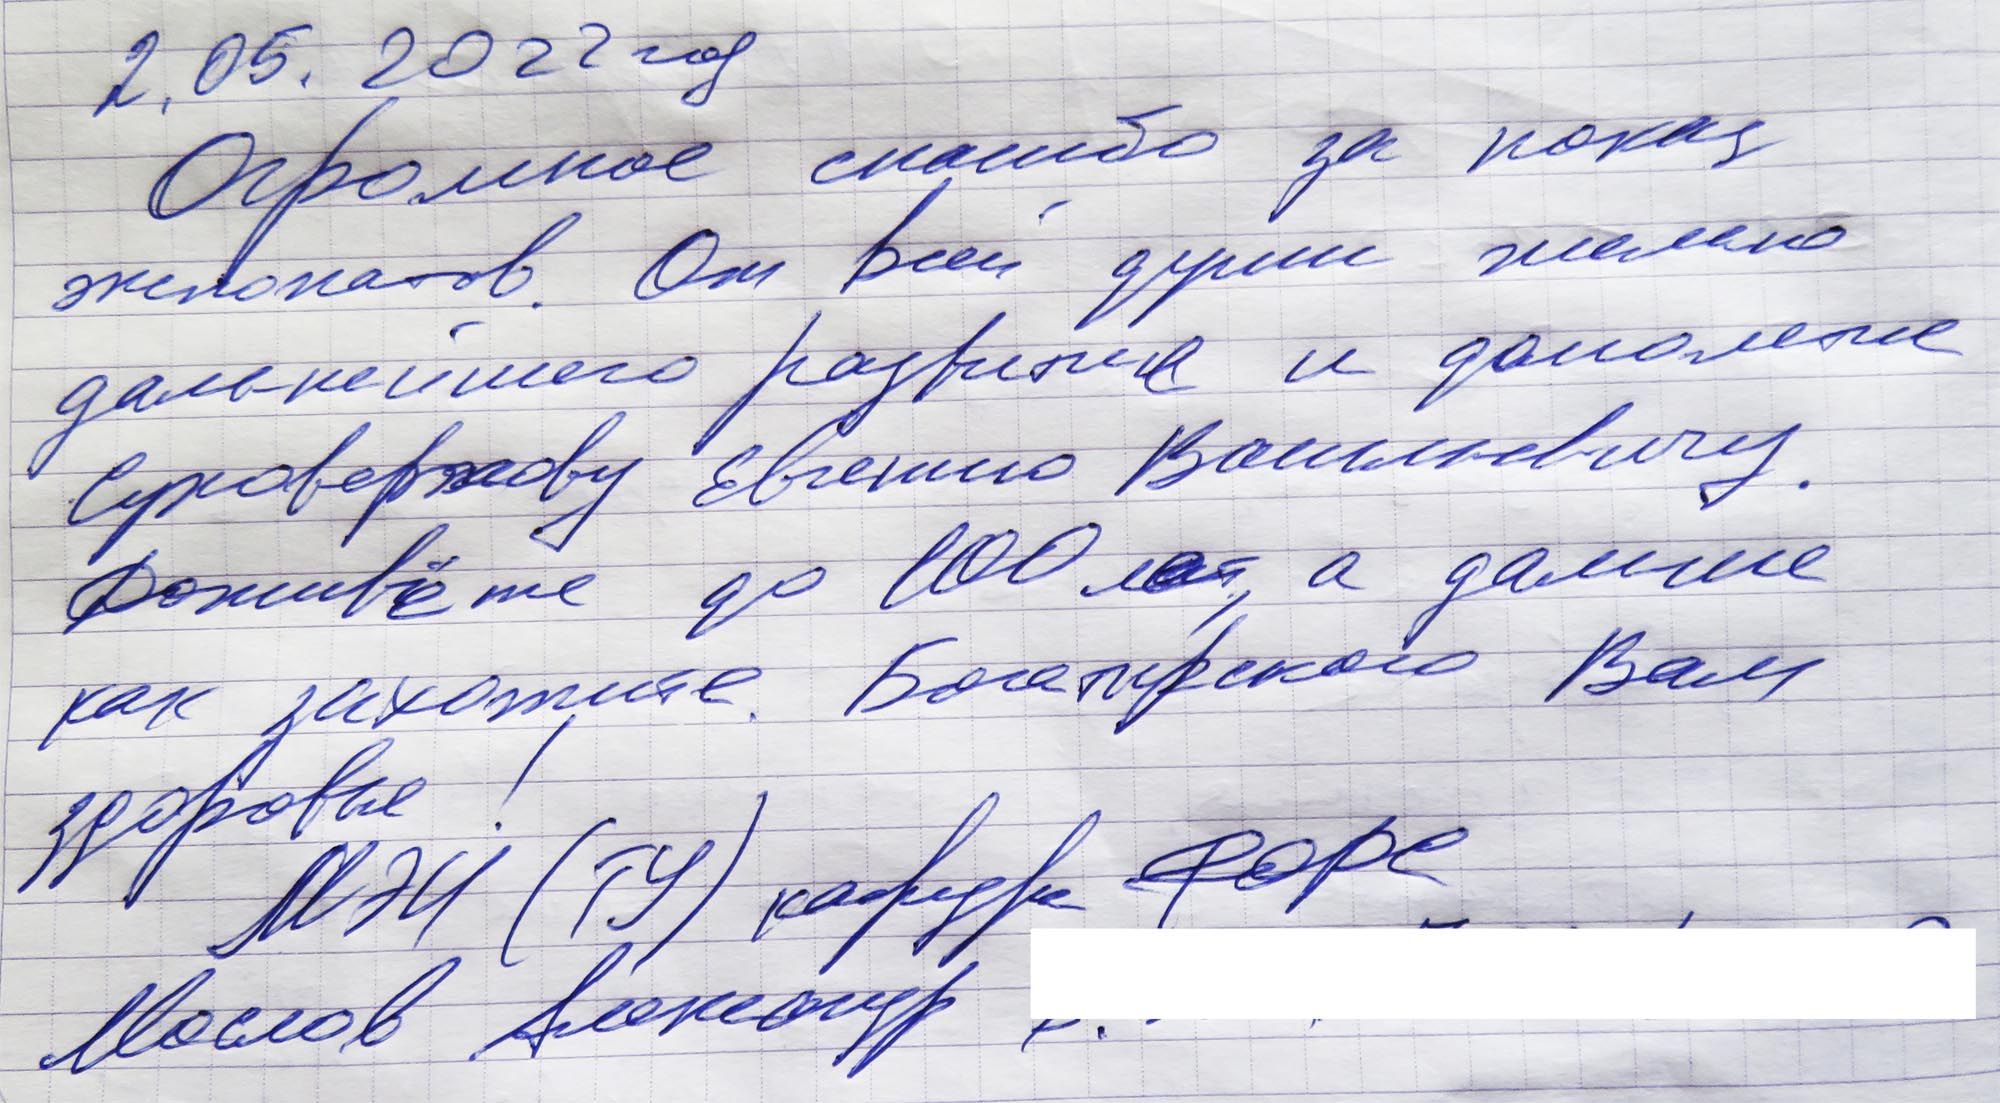 2.05.2022 год
Огромное спасибо за показ
экспонатов. От всей души желаю
дальнейшего развития и долголетие
Суховерхову Евгению Васильевичу.
Доживёте до 100 лет, а дальше
как захотите. Богатырского Вам
здоровье!
МЭИ (ТУ) кафедра ФОРС
Маслов Александр